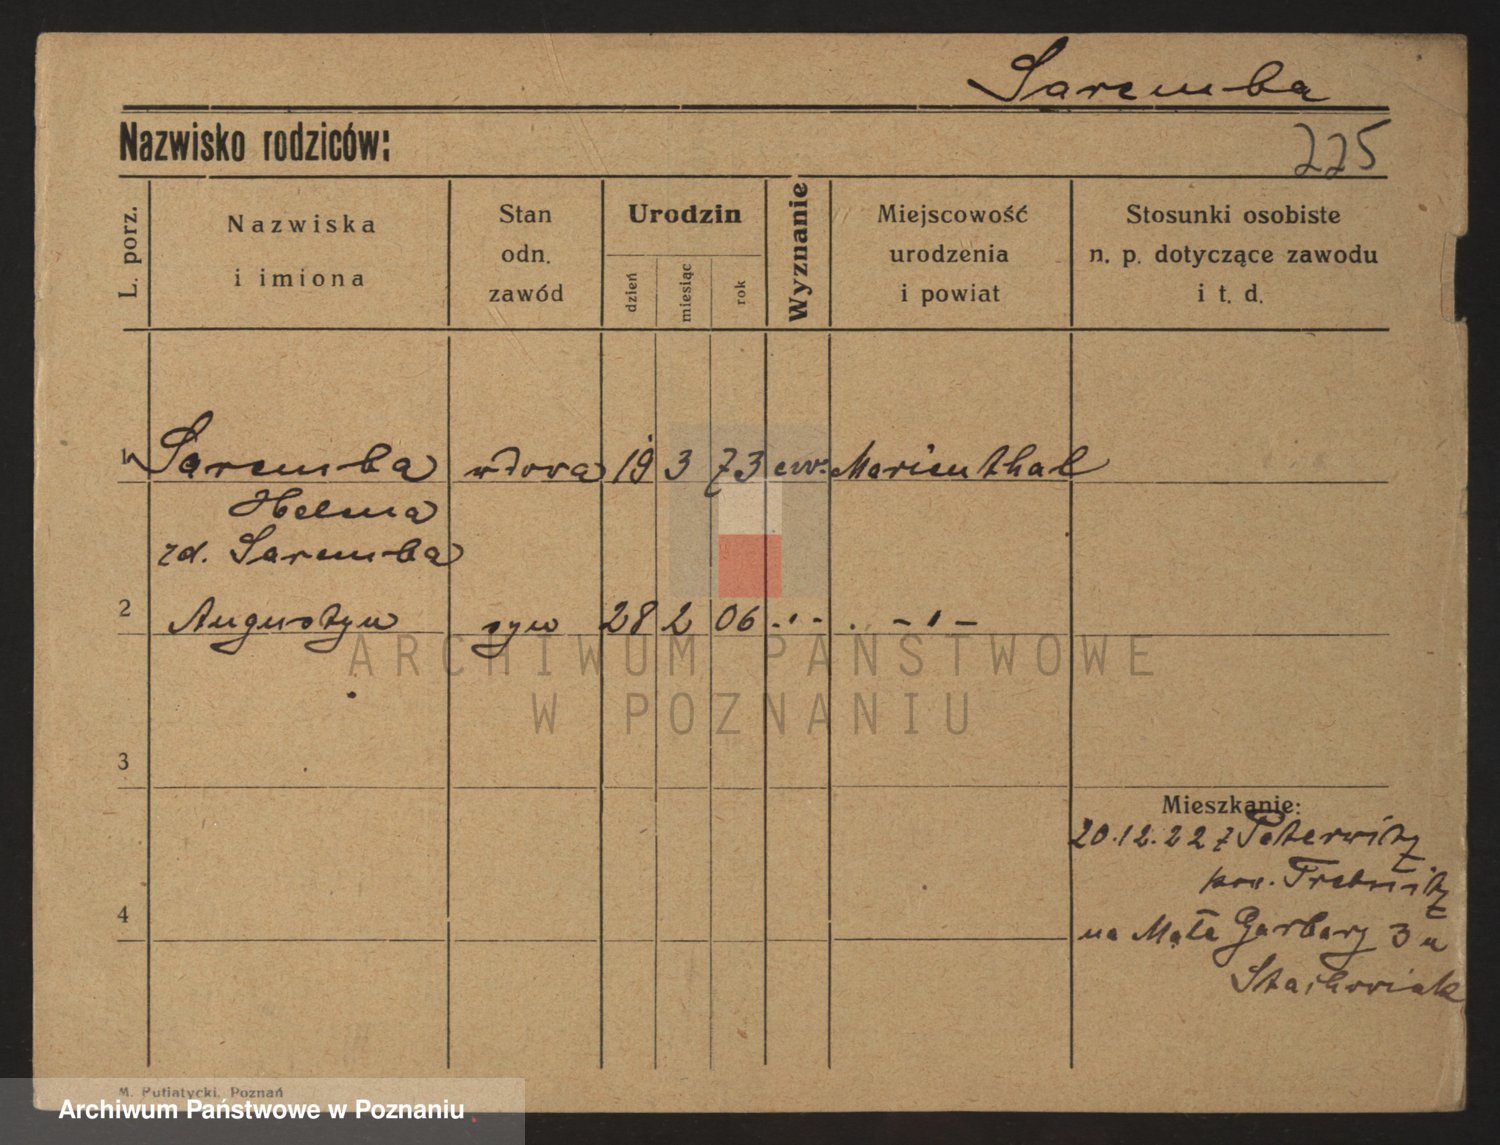 Saremba
Nazwisko rodziców:
225
L. porz.
Nazwiska
i imiona
Stan
odn.
zawód
Urodzin
dzień
miesiąc
rok
Wyznanie
Miejscowość
urodzenia
i powiat
Stosunki osobiste
n. p. dotyczące zawodu
i t. d.
Saremba wdowa 19 3 73 ew. Marienthal
Helena
zd. Saremba
2 Augustyn syn 28 2 06
ARCHIWUM PAŃSTWOWE
W POZNANIU
3
Mieszkanie:
20.12.22 z Peterwitz
pow. Trebnitz
4
na Małe Garbary 3 u
Stachowiak
M. Putiatycki, Poznań
Archiwum Państwowe w Poznaniu